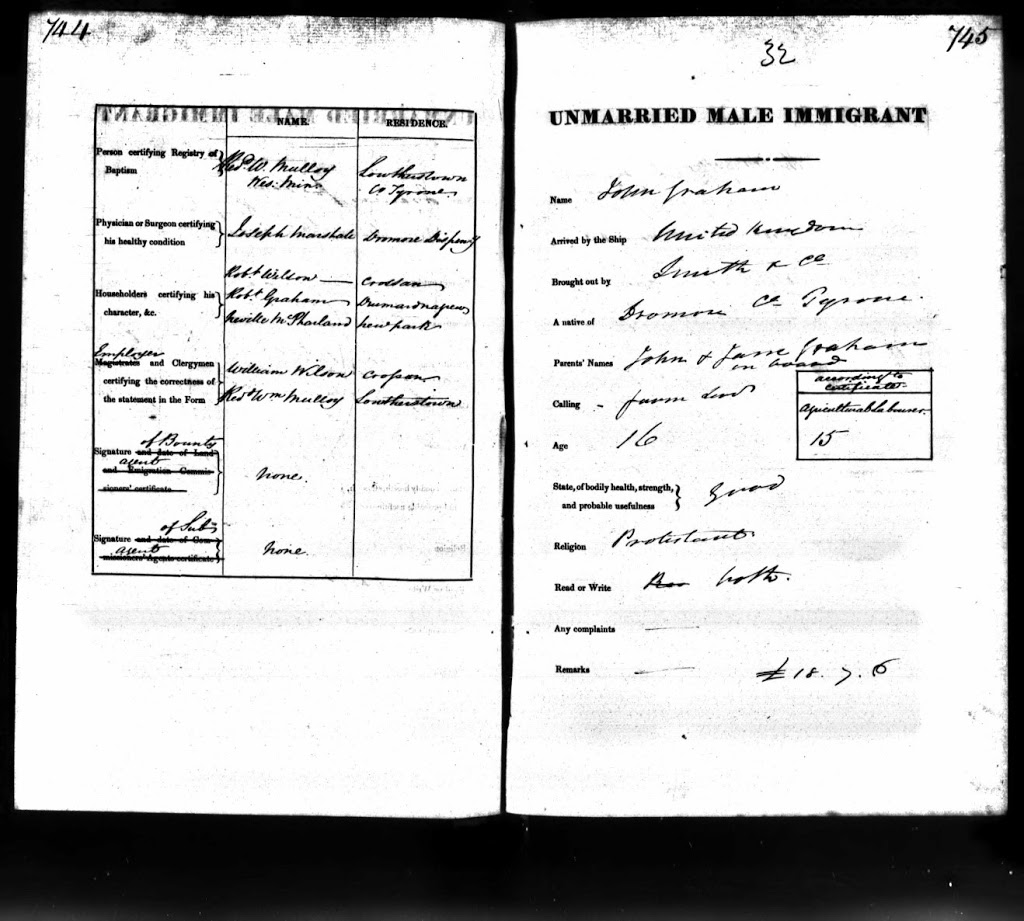 744
NAME.
RESIDENCE.
Person certifying Registry of Baptism
Revd. W. Mulloy
Wes: Minr.
Lowtherstown
Co Tyrone
Physician or Surgeon certifying his healthy condition
Joseph Marshall
Dromore Dispensy
Householders certifying his character, &c.
Robt. Wilson
Crossan
Robt. Graham
Neville McPharland
new park
Employer
Magistrates and Clergymen certifying the correctness of the statement in the Form
William Wilson
Crossan
Revd. Wm Mulloy
Lowtherstown
of Bounty
Signature and date of Land
agent
and Emigration Commis-
sioners' certificate
none.
of Sub
Signature and date of Com-
agent
missioners' Agents certificate
none
745
32
UNMARRIED MALE IMMIGRANT
Name John Graham
Arrived by the Ship United Kingdom
Brought out by Smith & Co
A native of Dromore Co Tyrone.
Parents' Names John & Jane Graham
on board
according to
certificate.
Calling - farm
Agricultural Labourer.
Age 16
15
State, of bodily health, strength, and probable usefulness good
Religion Protestant
Read or Write both.
Any complaints
Remarks £18. 7. 6